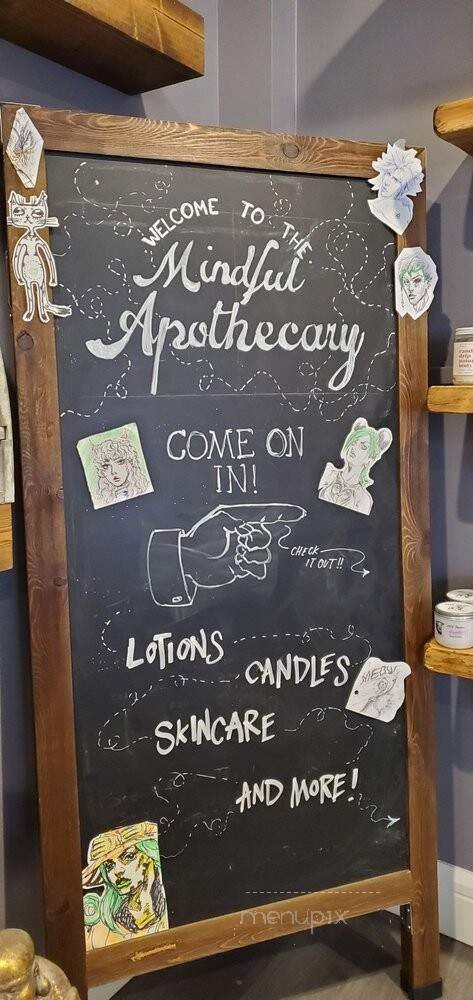 WELCOME TO THE
Mindful
Apothecary
COME ON
IN!
CHECK
IT OUT!!
LOTIONS
CANDLES
MEOW
SKINCARE
AND MORE!
menupix